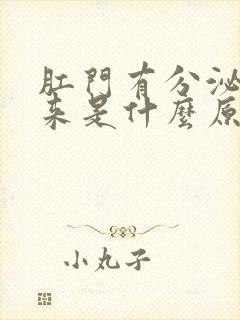 肛門有分泌
来是什麼原
小丸子